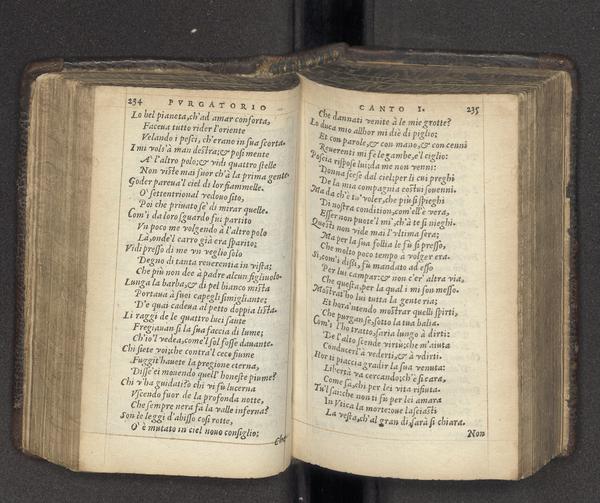 234 PVRGATORIO
Lo bel pianeta, ch'ad amar conforta,
Faceua tutto rider l'oriente
Velando i pesci, ch'erano in sua scorta.
I mi uols'à man destra; & posi mente
A' l'altro polo; & uidi quattro stelle
Non uiste mai fuor ch'à la prima gente.
Goder pareua'l ciel di lor fiammelle.
O' settentrional uedouo sito,
Poi che priuato se' di mirar quelle.
Com'i da loro sguardo fui partito
Vn poco me uolgendo à l'altro polo
Là, onde'l carro già era sparito;
Vidi presso di me un ueglio solo
Degno di tanta reuerentia in uista;
Che più non dee à padre alcun figliuolo.
Lunga la barba, & di pel bianco mista
Portaua à suoi capegli simigliante;
D'e quai cadeua al petto doppia lista.
Li raggi de le quattro luci sante
Fregiauan sì la sua faccia di lume;
Ch'io'l uedea, come'l sol fosse dauante.
Chi siete uoi; che contra'l ceco fiume
Fuggit'hauete la pregione eterna,
Diss'ei mouendo quell'honeste piume?
Chi u'ha guidati? ò chi ui fù lucerna
Vscendo fuor de la profonda notte,
Che sempre nera fa la ualle inferna?
Son le leggi d'abisso così rotte,
O' è mutato in ciel nouo consiglio;
Che
CANTO I. 235
Che dannati uenite à le mie grotte?
Lo duca mio allhor mi diè di piglio;
Et con parole, & con mano, & con cenni
Reuerenti mi fe le gambe, e'l ciglio:
Poscia rispose lui: da me non uenni:
Donna scese dal ciel; per li cui preghi
De la mia compagnia costui souenni.
Ma da ch'è tu' uoler, che più si spieghi
Di nostra condition, com'ell'è uera,
Esser non puote'l mi', ch'à te si nieghi.
Questi non uide mai l'ultima sera;
Ma per la sua follia le fù sì presso,
Che molto poco tempo à uolger era.
Sì, com'i dissi, fù mandato ad esso
Per lui campar: & non c'er' altra uia,
Che questa, per la qual i mi son messo.
Mostrat'ho lui tutta la gente ria;
Et hora'ntendo mostrar quelli spirti,
Che purgan se, sotto la tua balia.
Com'i l'ho tratto, saria lungo à dirti:
De l'alto scende uirtù; che m'aiuta
Conducerl'à uederti, & à udirti.
Hor ti piaccia gradir la sua uenuta:
Libertà ua cercando; ch'è sì cara,
Come sa, chi per lei uita rifiuta.
Tu'l sai: che non ti fù per lei amara
In Vtica la morte: oue lasciasti
La uesta, ch'al gran dì sarà sì chiara.
Non